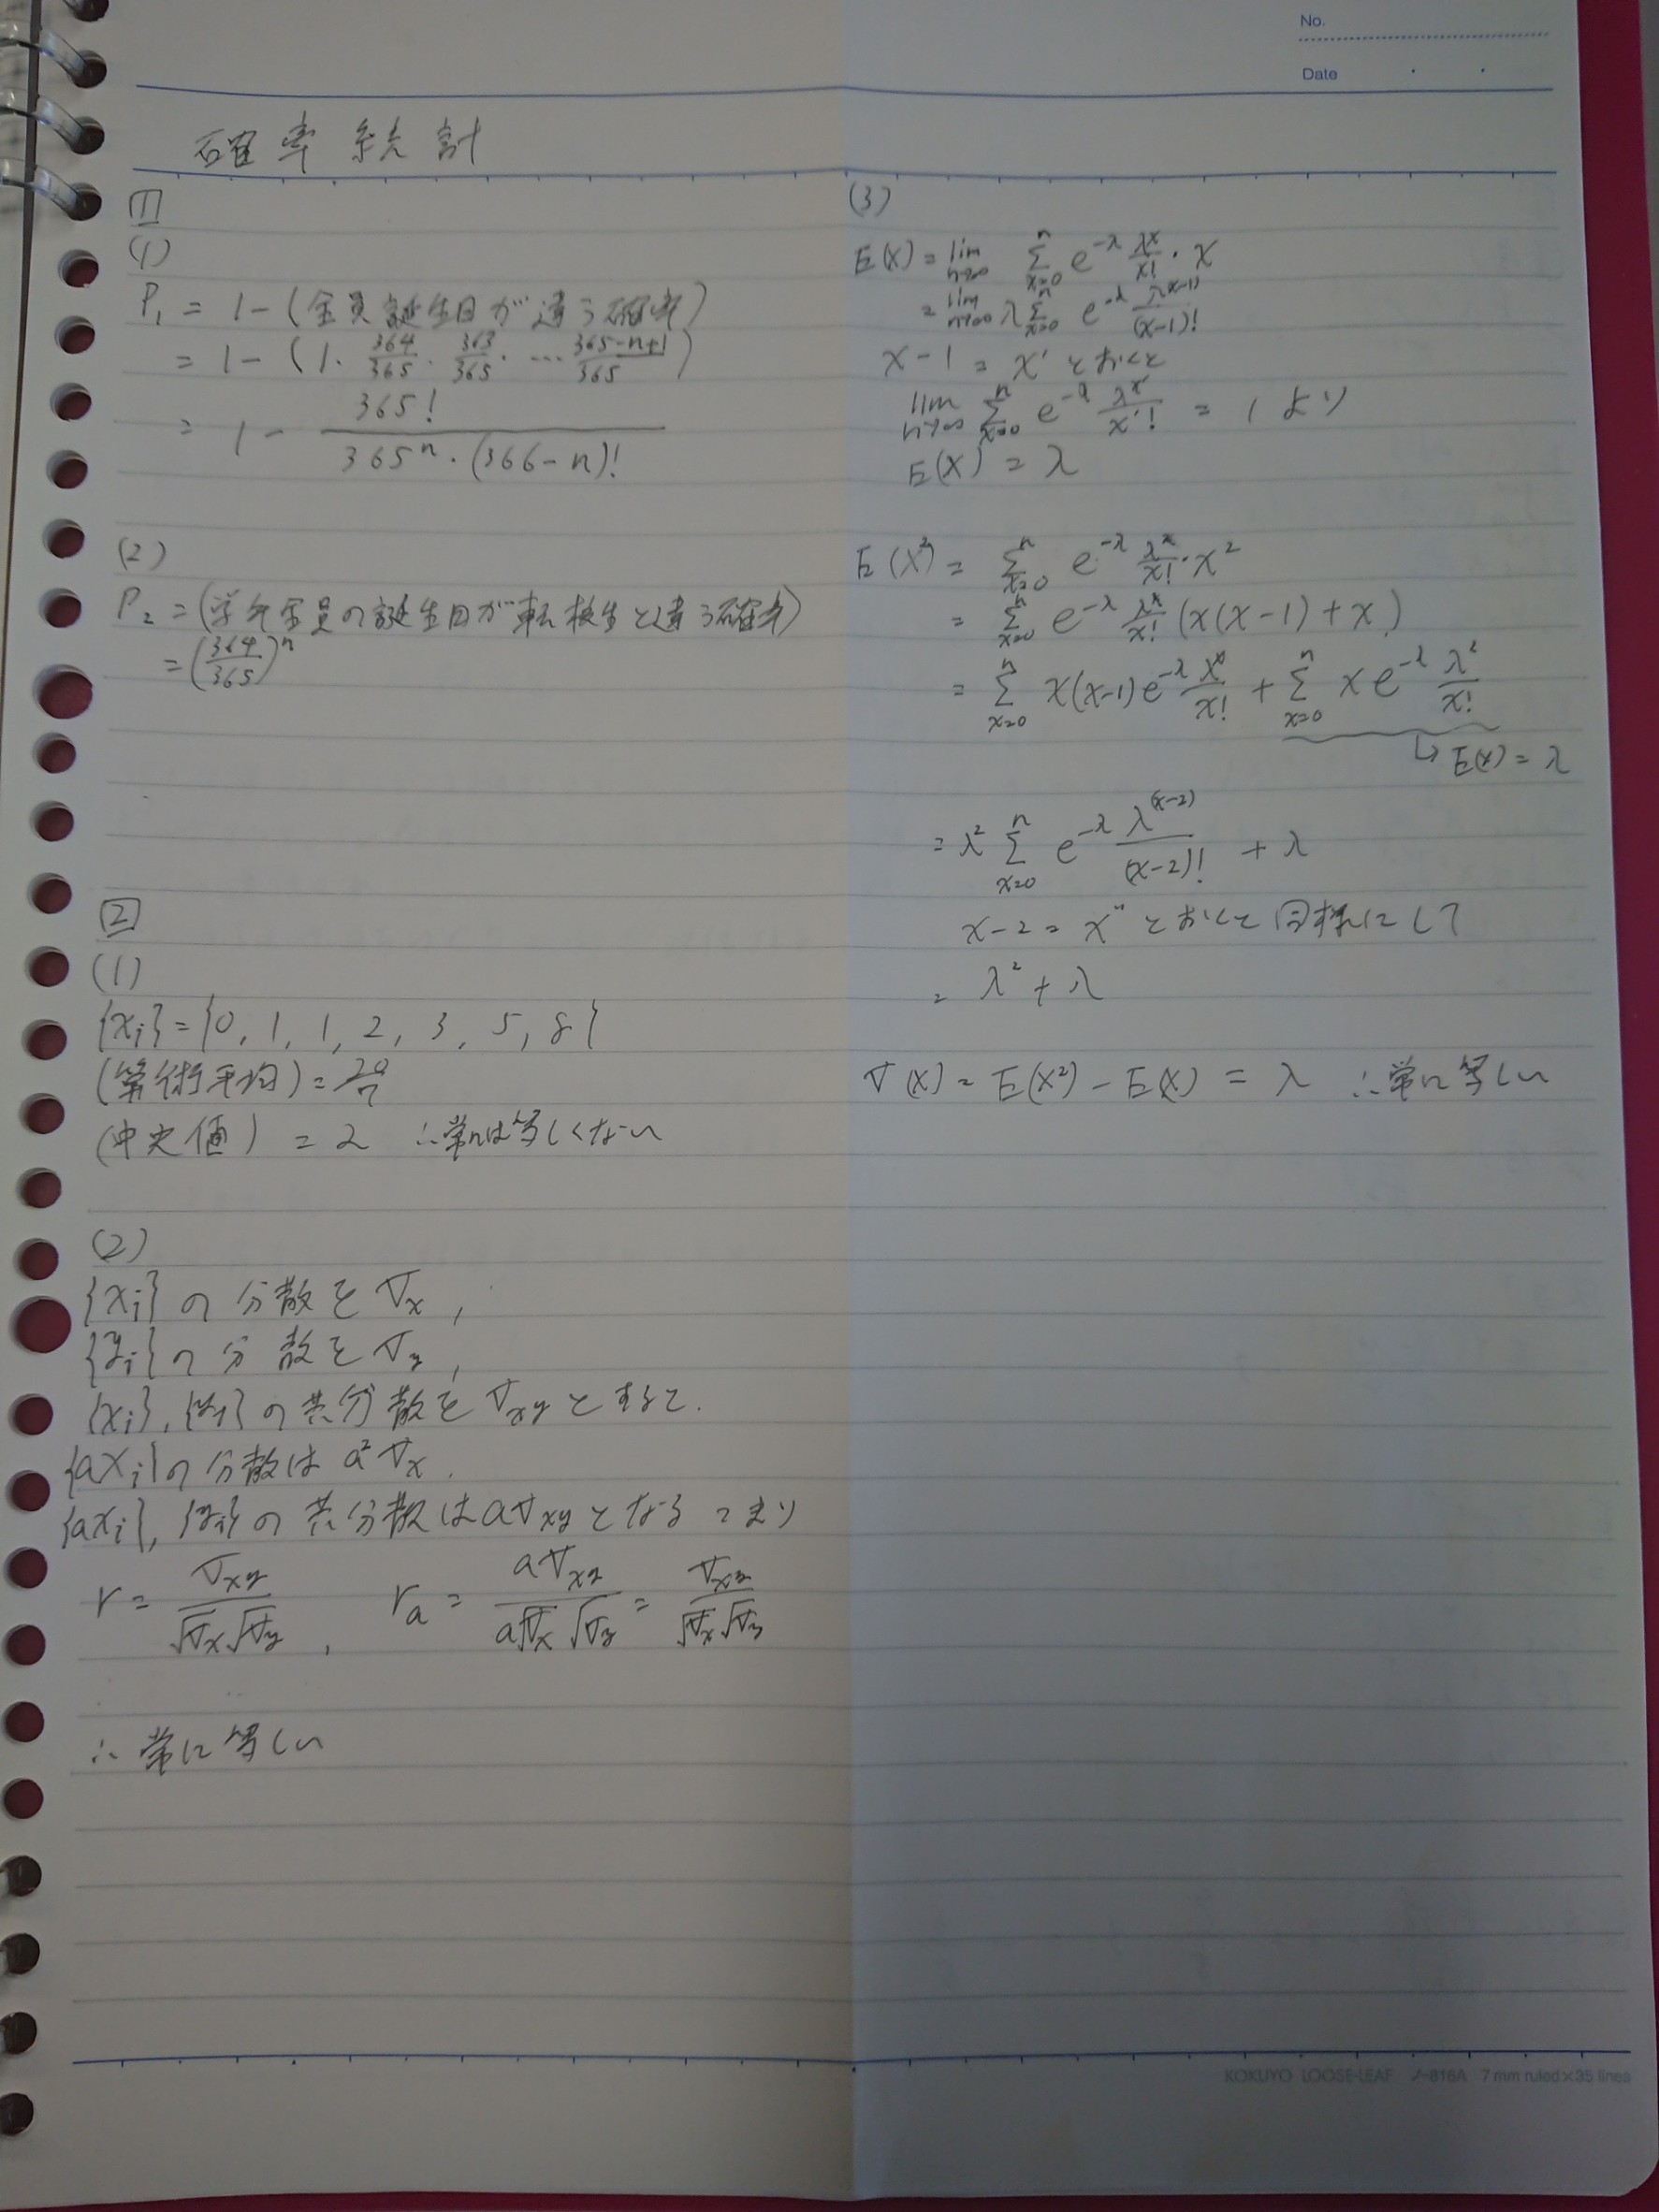 No.
Date
確率統計
1
(1)
P₁ = 1-(全員誕生日が違う確率)
= 1-(1・364/365・363/365・…365-n+1/365)
= 1 - 365!/(365ⁿ・(366-n)!)
(2)
P₂ =(学年全員の誕生日が転校生と違う確率)
=(364/365)ⁿ
2
(1)
{xᵢ}={0, 1, 1, 2, 3, 5, 8}
(算術平均)=20/7
(中央値) = 2 ∴常には等しくない
(2)
{xᵢ}の分散をVx,
{yᵢ}の分散をVy,
{xᵢ},{yᵢ}の共分散をVxyとすると.
{axᵢ}の分散はa²Vx.
{axᵢ},{yᵢ}の共分散はaVxyとなる つまり
r = Vxy/(√Vx√Vy) , rₐ = aVxy/(a√Vx√Vy) = Vxy/(√Vx√Vy)
∴常に等しい
(3)
E(X)= lim n→∞ Σ[x=0→n] e^-λ λ^x/x!・x
= lim n→∞ λΣ[x=0→n] e^-λ λ^(x-1)/(x-1)!
x-1 = x' とおくと
lim n→∞ Σ[x=0→n] e^-λ λ^x'/x'! = 1 より
E(X) = λ
E(X²) = Σ[x=0→n] e^-λ λ^x/x!・x²
= Σ[x=0→n] e^-λ λ^x/x! (x(x-1)+x)
= Σ[x=0→n] x(x-1)e^-λ λ^x/x! + Σ[x=0→n] x e^-λ λ^x/x!
↳ E(X)=λ
= λ² Σ[x=0→n] e^-λ λ^(x-2)/(x-2)! + λ
x-2 = x'' とおくと同様にして
= λ²+λ
V(X)= E(X²)-E(X) = λ ∴常に等しい
KOKUYO LOOSE-LEAF ノ-816A 7 mm ruled×35 lines